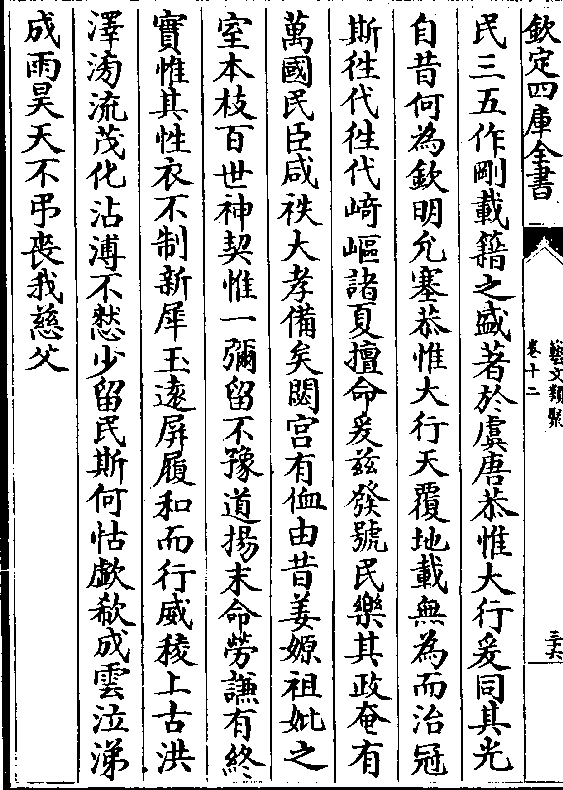 欽定四庫全書
藝文類聚
卷十二
三六
民三五作剛載籍之盛著於虞唐恭惟大行爰同其光
自昔何為欽明允塞恭惟大行天覆地載無為而治冠
斯徃代徃代﨑嶇諸夏擅命爰兹發號民樂其政奄有
萬國民臣咸袟大孝備矣閟宫有侐由昔姜嫄祖妣之
室本枝百世神契惟一彌留不豫道揚末命勞謙有終
寳惟其性衣不制新犀玉逺屏履和而行威稜上古洪
澤滂流茂化沾溥不憖少留民斯何怙歔欷成雲泣涕
成雨昊天不弔喪我慈父